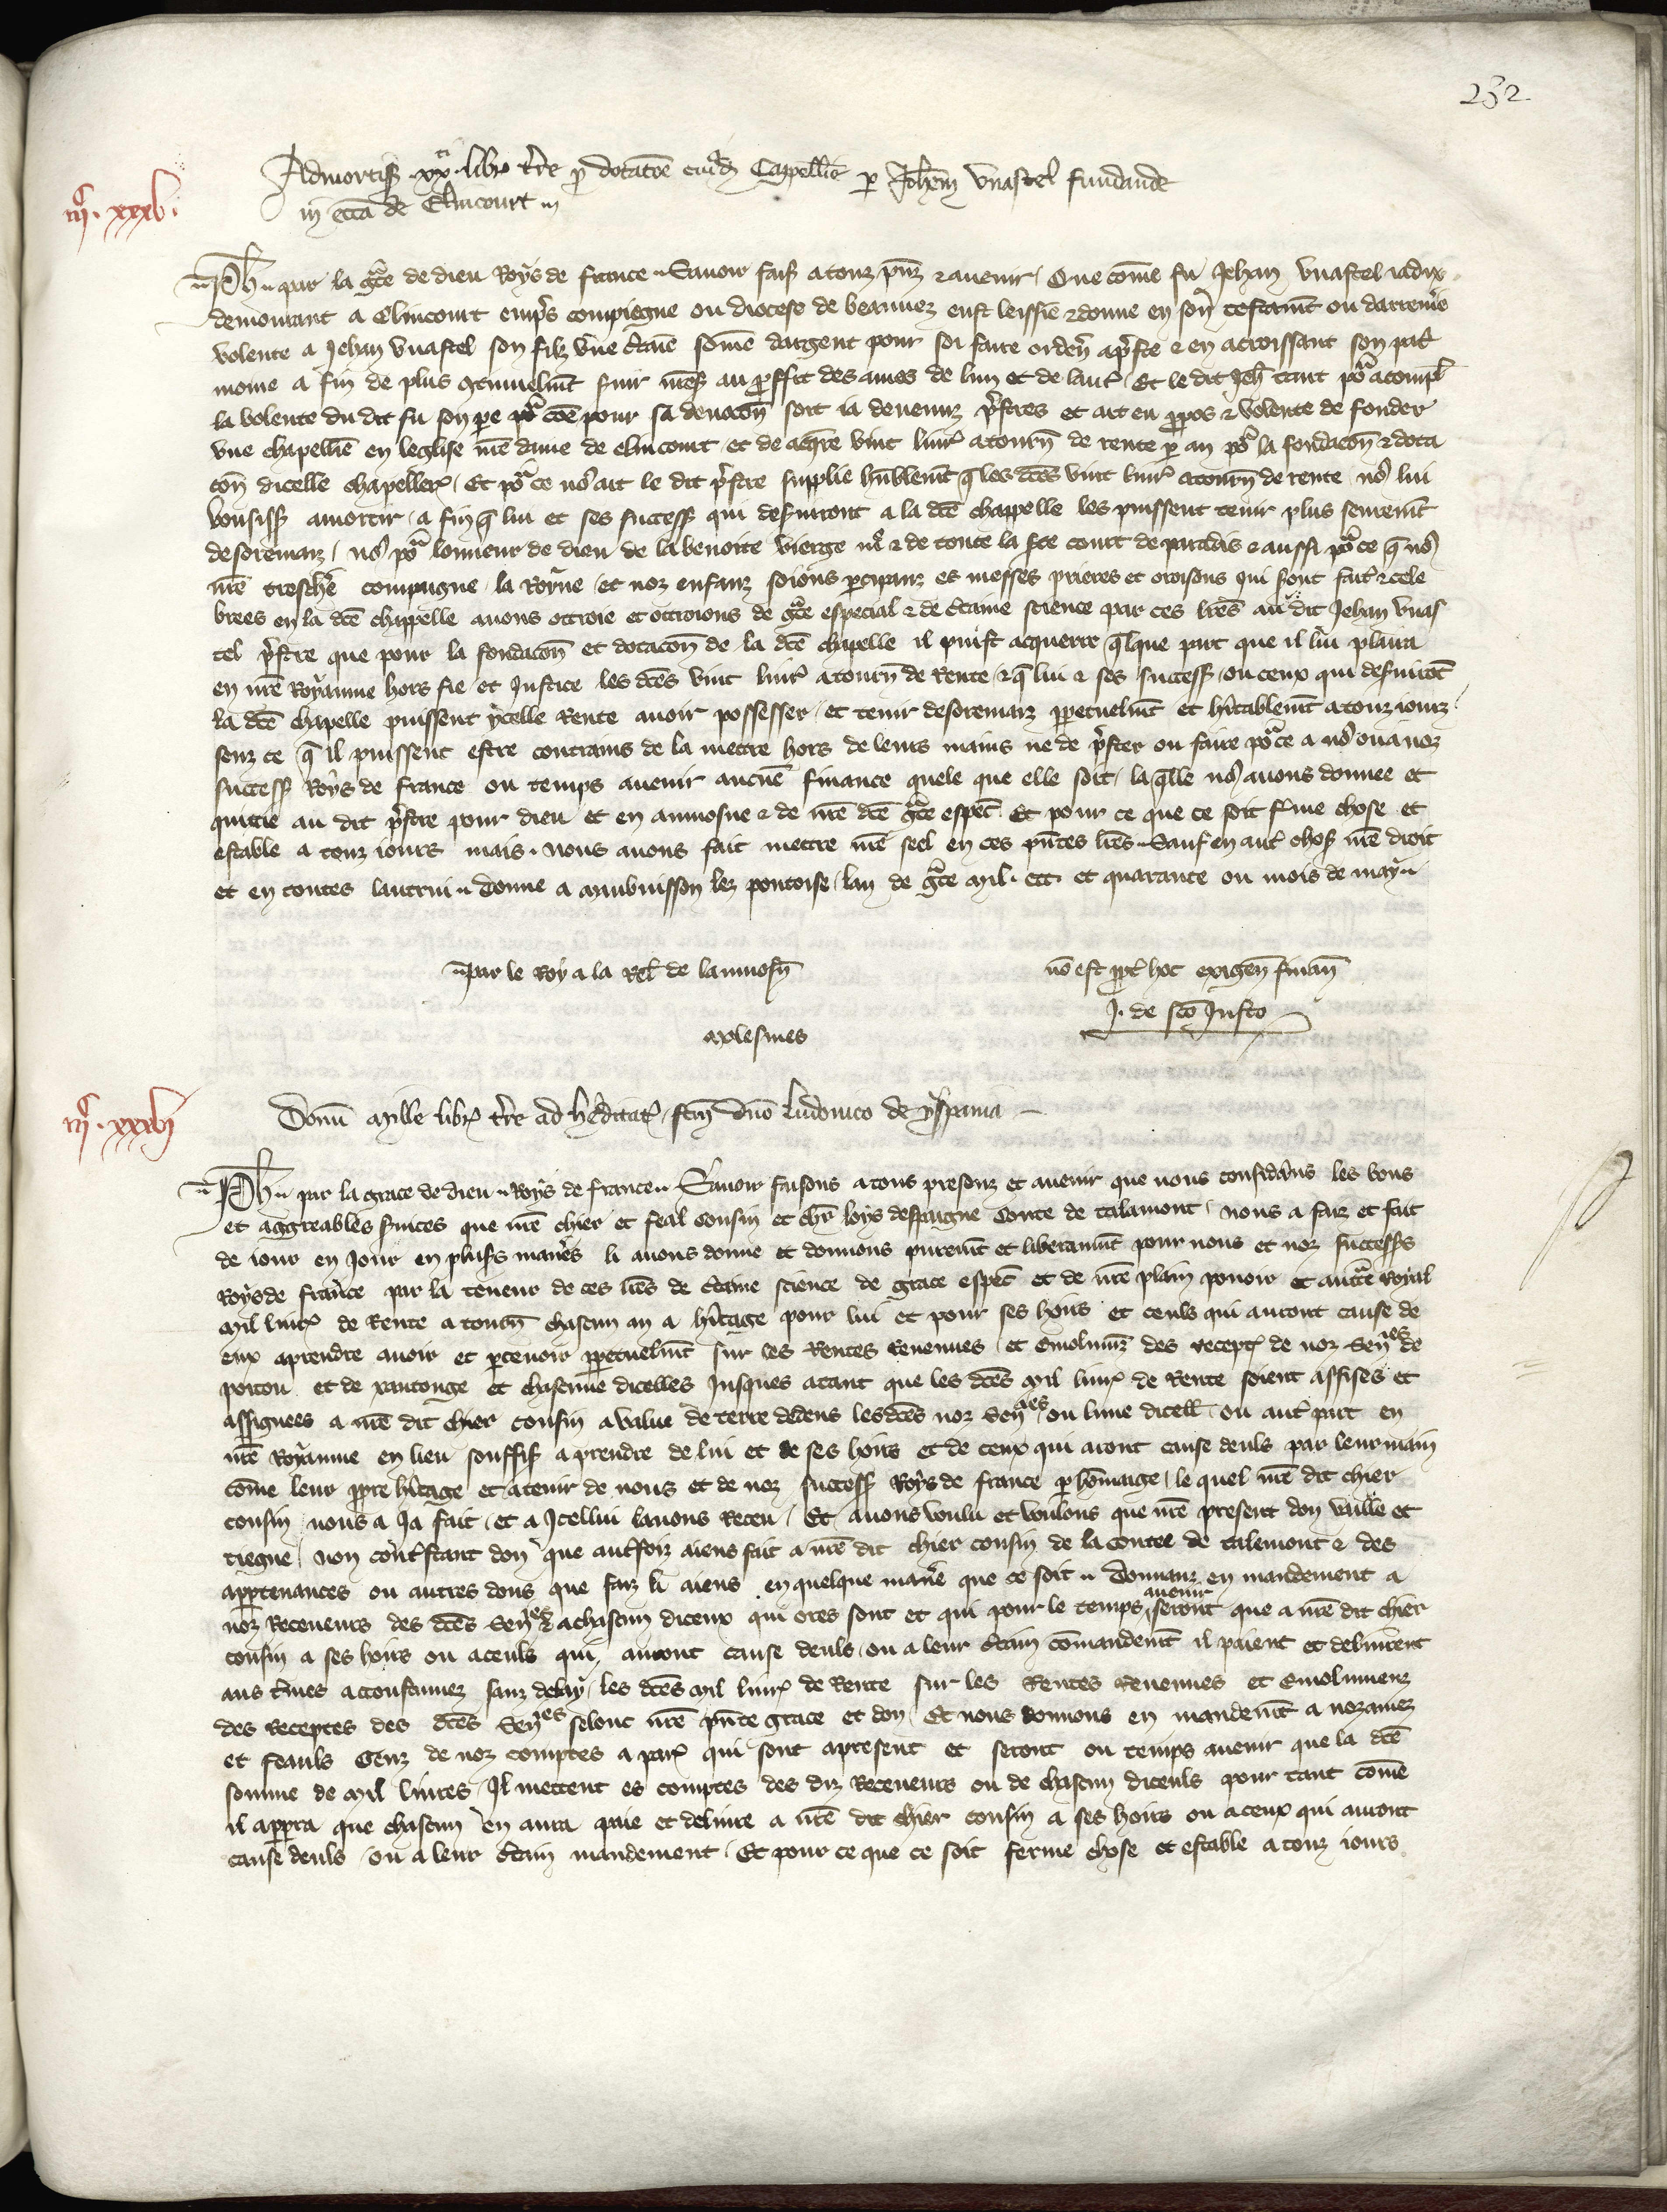 252
Admortiss̄ .xx.ti libr̄ t̄re ꝑ dotac̄oe cuiusd̄ Capellīe ꝑ Joh̄em Vuastel fundande
in ecc̄a de Elincourt
iiijc. xxxv.
Ph par la gr̄ce de dieu Roys de france Sauoir fais̄ a touz pn̄z ⁊ auenir Que com̄e fu Jehan Vuastel iadix
demourant a Elincourt emp̄s compiegne ou diocese de beauuez eust leissie ⁊ donne en son testam̄t ou darreniē
volente a Jehan Vuastel son filz vne c̄taīe som̄e dargent pour soi faire orden̄ a p̄stre ⁊ en acroissant son pat̄
moine a fin de plus g̅tinuelm̄t fair mess̄ au ꝓffit des ames de lun et de laut̄ Et le dit Jeh̄ tant po᷑ acompl̄
la volente du dit fu son pe po᷑ com̄e pour sa deuoc̄on soit ia deuenuz p̄stres et ait eu ꝓpos ⁊ volente de fonder
vne chapellīe en leglise n̄re dame de elincourt et de acq̄rre vint liur̄ a tourn̄ de rente ꝑ an po᷑ la fondac̄on ⁊ dota
c̄on dicelle chapeller̄ Et po᷑ ce no᷒ ait le dit p̄stre supplie hūblem̄t q̄ les dc̄es vint liur̄ a tourn̄ de rente no᷒ lui
vousiss̄ amortir a fin q̄ lui et ses success̄ qui deseruiront a la dc̄e chappelle les puissent tenir plus seurem̄t
desoremaiz no᷒ po᷑ lonneur de dieu de la benoite vierge m̄e ⁊ de toute la sc̄e court de paradis ⁊ aussi po᷑ ce q̄ no᷒
n̄re treschēe compaigne la Royne et noz enfanz soions ꝑcipanz es messes prieres et oroisons qui sont fait̄ ⁊ cele
brees en la dc̄e chappelle auons ottroie et ottroions de gr̄ce especial ⁊ de c̄taine science par ces lr̄es au dit Jehan Vuas
tel p̄stre que pour la fondac̄on et dotac̄on de la dc̄e chapelle il puist acquerre q̄lque part que il lui plaira
en n̄re Royaume hors fie et Justice les dc̄es vint liur̄ a tourn̄ de Rente ⁊ q̄ lui ⁊ ses success̄ ou ceux qui deseruirōt
la dc̄e chapelle puissent ycelle Rente auoir possesser et tenir desoremaiz ꝑpetuelm̄t et h̄itablem̄t a touz iourz
senz ce q̄ il puissent estre contrains de la mettre hors de leurs mains ne de p̄ster ou faire po᷑ ce a no᷒ ou a noz
success̄ Roys de france ou temps auenir aucūe finance quele que elle soit la q̄lle no᷒ auons donnee et
quittie au dit p̄stre pour dieu et en aumosne ⁊ de n̄re dc̄e gr̄ce espec̄ Et pour ce que ce soit f̄me chose et
estable a touz iours mais. Nous auons fait mettre n̄re seel en ces pn̄tes lr̄es Sauf en aut̄ chos̄ n̄re droit
et en toutes lautrui Donne a Maubuisson lez pontoise lan de gr̄ce Mil. ccc. et quarante ou mois de may
par le Roy a la Rel̄ de laumosn̄
nō est ꝓpt̄ hoc exigen̄ finan̄
J. de sc̄o Justo
Molesmes
iiijc. xxxvj
Donū Mille libr̄ t̄re ad h̄editat̄ fc̄m Dn̄o Ludouico de yspania
Ph par la grace de dieu Roys de france Sauoir faisons a tous presenz et auenir que nous consid̄ans les bons
et aggreables s̄uices que n̄re chier et feal Cousin et ch̄r loys despaigne Conte de talamont nous a faiz et fait
de iour en Jour en plus̄s manēs li auons donne et donnons purem̄t et liberaum̄t pour nous et noz successs̄
Roys de france par la teneur de ces lr̄es de c̄taine science de grace espec̄ et de n̄re plain pouoir et auct̄e royal
Mil liur̄ de Rente a tourn̄ chascun an a h̄itage pour lui et pour ses hoirs et ceuls qui auront cause de
eux a prendre auoir et ꝑceuoir ꝑpetuelm̄t sur les Rentes Reuenues et Emolum̄z des recept̄ de noz Sen̄es de
poitou et de xantonge et chascune dicelles Jusques a tant que les dc̄es Mil liur̄ de Rente soient assises et
assignees a n̄re dit chier cousin a value de terre dedens lesdc̄es noz Sen̄es ou lune dicell̄ ou aut̄ part en
n̄re Royaume en lieu souffis̄ a prendre de lui et de ses hoirs et de ceux qui aront cause deuls par leur main
com̄e leur ꝓpre h̄itage et a tenir de nous et de noz success̄ Roys de france ꝑ hom̄aige le quel n̄re dit chier
cousin nous a Ja fait et a Jcellui lauons receu Et auons voulu et voulons que n̄re present don vaille et
tiegne Non cont̄stant don que aut̄foiz aiens fait a n̄re dit chier cousin de la contee de talemont ⁊ des
appartenances ou autres dons que faiz li aiens en quelque manēe que ce soit Donnanz en mandement a
noz Receueurs des dc̄es Sen̄es ⁊ a chascun diceux qui ores sont et qui pour le temps auenir seront que a n̄re dit chier
cousin a ses hoirs ou a ceuls qui auront cause deuls ou a leur c̄tain com̄andem̄t il paient et deliurent
aus t̄mes accoustumez sanz delay les dc̄es Mil liur̄ de Rente sur les Rentes Reuenues et Emolumenz
des Receptes des dc̄es Sen̄es selonc n̄re pn̄te grace et don Et nous donnons en mandem̄t a noz amez
et feauls Genz de noz comptes a par̄ qui sont a present et seront ou temps auenir que la dc̄e
somme de Mil liures Jl mettent es comptes des diz Receueurs ou de chascun diceuls pour tant com̄e
il apꝑra que chascun en aura paie et deliure a n̄re dit chier cousin a ses hoirs ou a ceux qui auront
cause deuls ou a leur c̄tain mandement Et pour ce que ce soit ferme chose et estable a touz iours